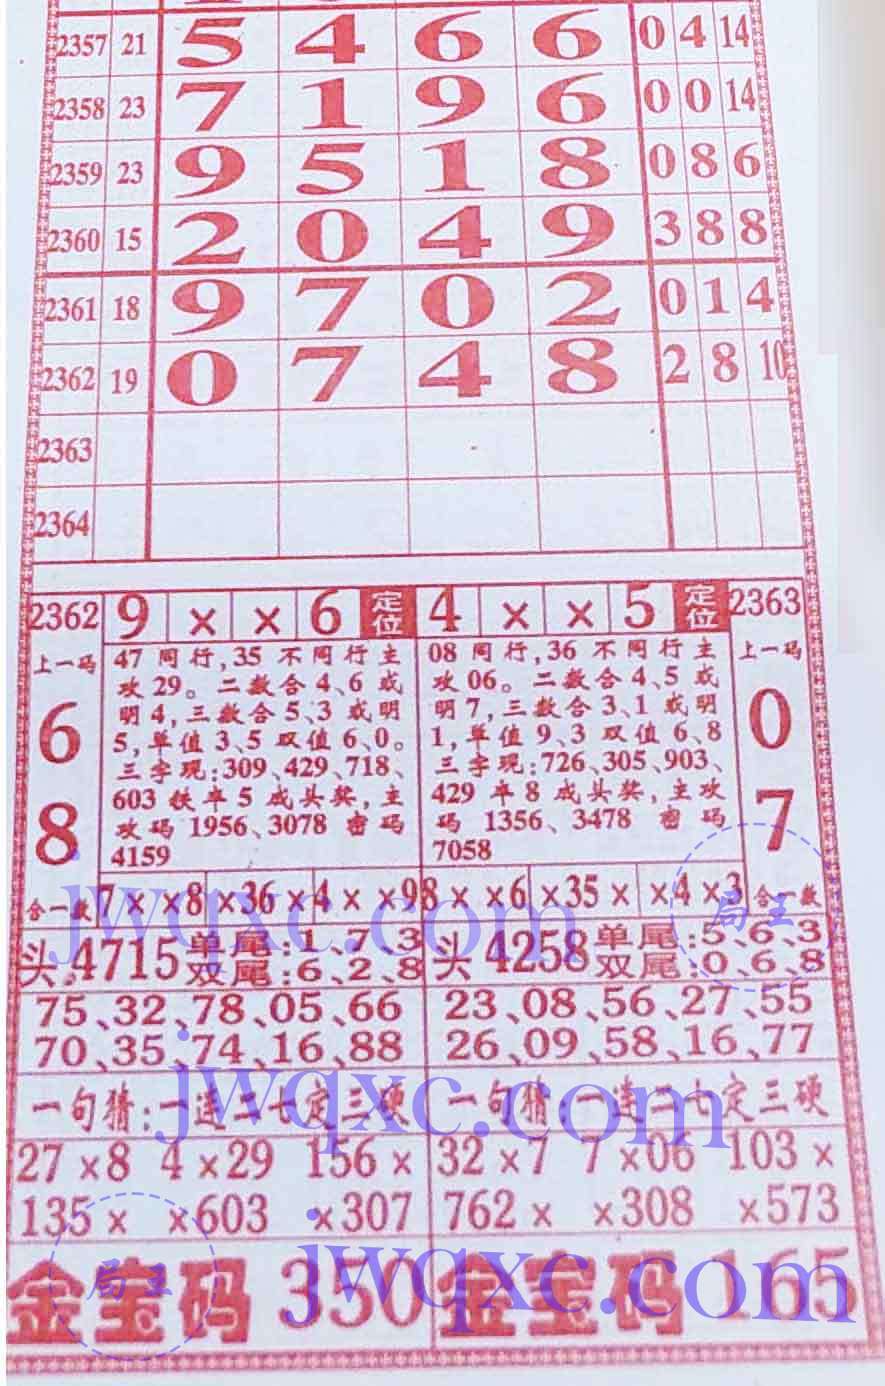 2357 21 5 4 6 6 0 4 14
2358 23 7 1 9 6 0 0 14
2359 23 9 5 1 8 0 8 6
2360 15 2 0 4 9 3 8 8
2361 18 9 7 0 2 0 1 4
2362 19 0 7 4 8 2 8 10
2363
2364
2362 9 × × 6 定位 4 × × 5 定位 2363
上一码
6
8
合一数
47 同行,35 不同行主
攻 29。二数合 4、6 或
明 4,三数合 5、3 或明
5,单值 3、5 双值 6、0。
三字现:309、429、718、
603 铁卒 5 成头奖,主
攻码 1956、3078 密码
4159
08 同行,36 不同行主
攻 06。二数合 4、5 或
明 7,三数合 3、1 或明
1,单值 9、3 双值 6、8
三字现:726、305、903、
429 卒 8 成头奖,主攻
码 1356、3478 密码
7058
上一码
0
7
合一数
7××8 ×36× 4××9 8××6 ×35× ×4×3
头 4715 单尾:1、7、3
双尾:6、2、8
头 4258 单尾:5、6、3
双尾:0、6、8
75、32、78、05、66
70、35、74、16、88
23、08、56、27、55
26、09、58、16、77
一句猜:一连二七定三硬
一句猜:一连二七定三硬
27×8 4×29 156×
135× ×603 ×307
32×7 7×06 103×
762× ×308 ×573
金宝码 350
金宝码 165
jwqxc.com
局王
jwqxc.com
局王
jwqxc.com